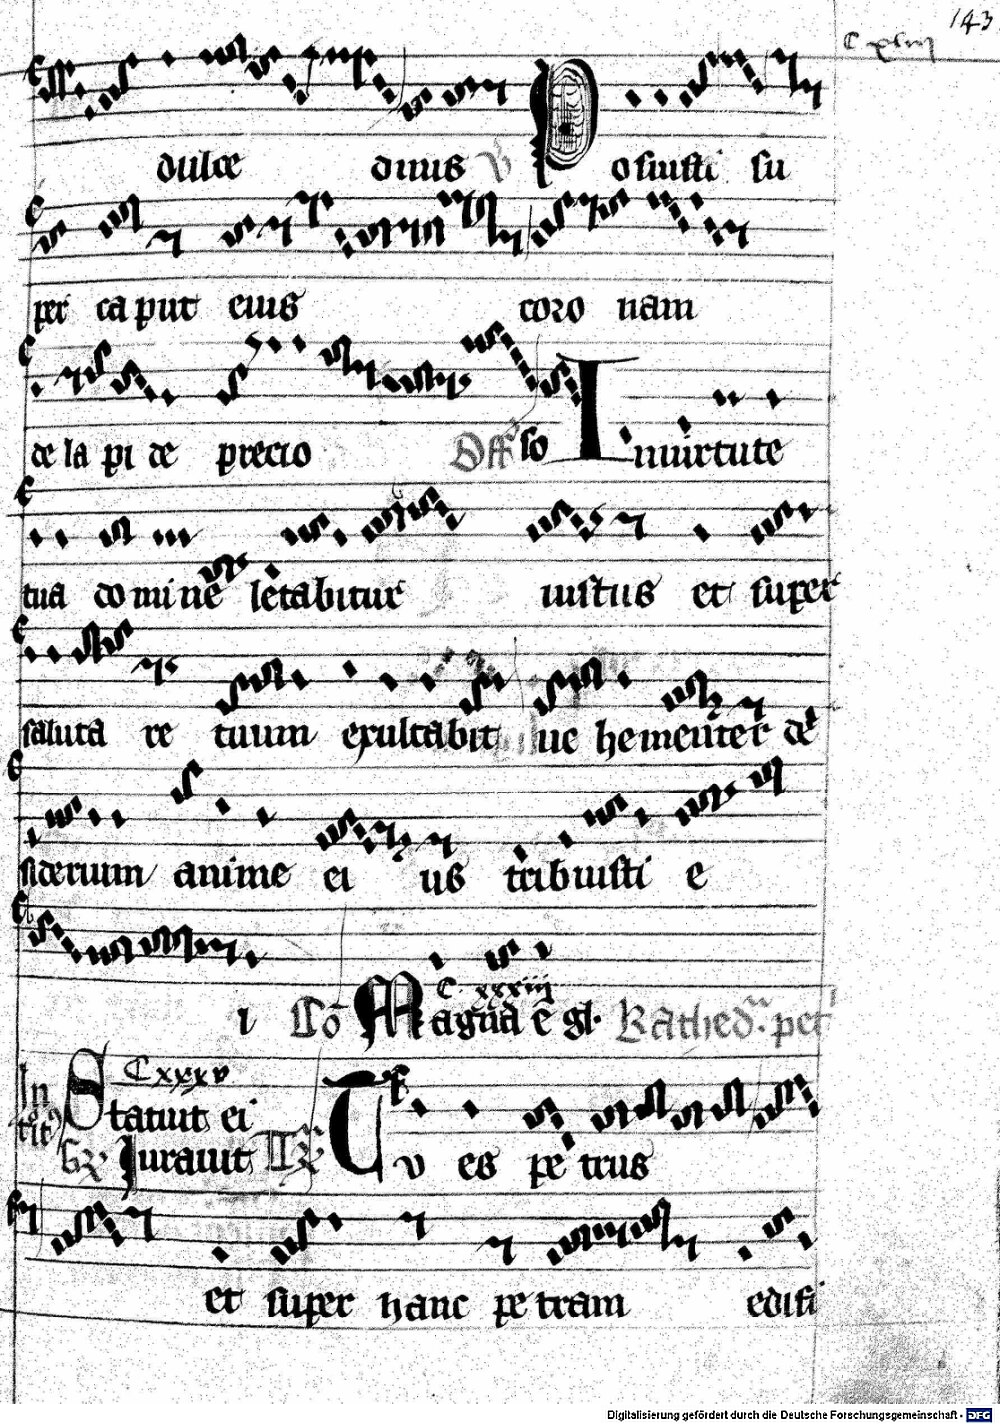 143
C xliij
dulce dinis V Posuisti su
per caput eius coro nam
de la pi de precio so Off In uirtute
tua domine letabitur iustus et super
saluta re tuum exultabit ue hementer de
siderium anime ei us tribuisti e
i Cō Magna ē gl. Kathed. pet
C xxxiij
C xxxv
Statuit ei
Iurauit Tu es pe trus
et super hanc pe tram edifi
Digitalisierung gefördert durch die Deutsche Forschungsgemeinschaft - DFG